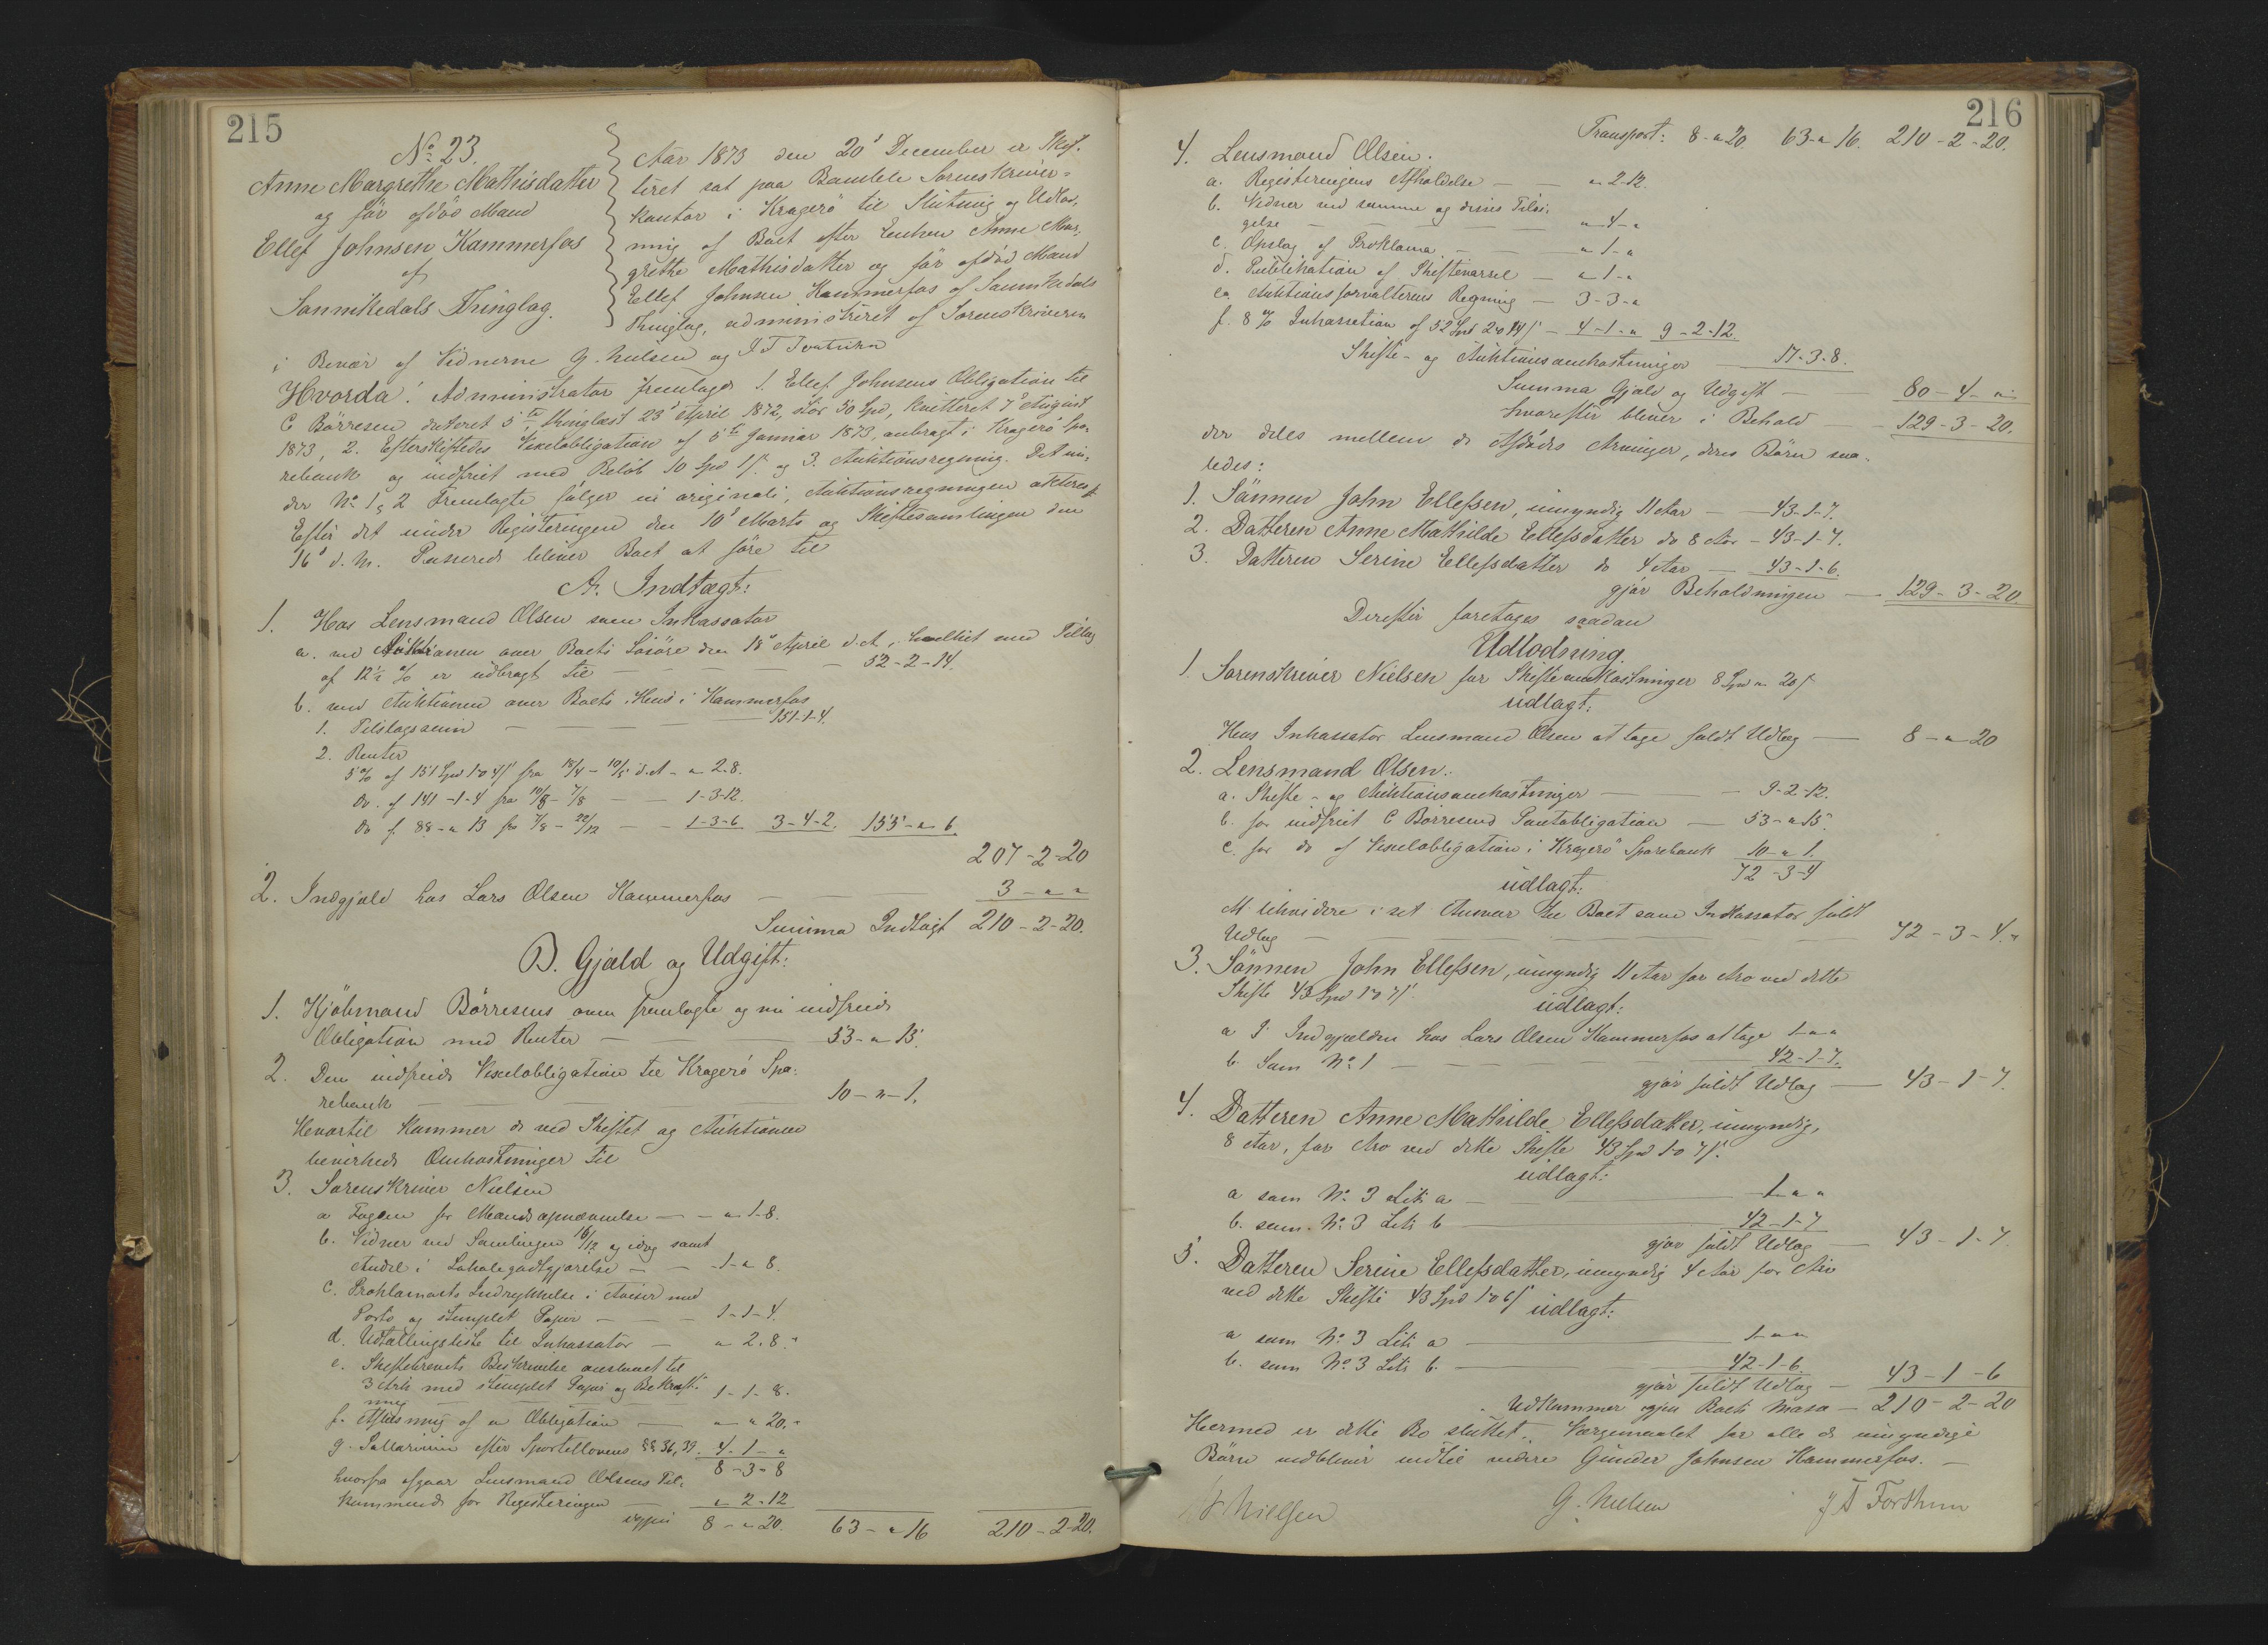 215
No. 23.
Anne Margrethe Mathisdatter
og før afdøde Mand
Ellef Johnsen Kammerfos
af
Sannikedals Thinglag.
Aar 1873 den 20' December er Skif-
teret sat paa Bamble Sorenskriver-
kontor i Kragerö til Slutning og Udlod-
ning af Boet efter Enken Anne Mar-
grethe Mathisdatter og før afdød Mand
Ellef Johnsen Kammerfos af Sannikedals
Thinglag, administreret af Sorenskriveren
i Overvær af Vidnerne G. Nielsen og J T
Hvorda: Administrator fremlagde 1. Ellef Johnsens Obligation til
C Börresen dateret 5te, thinglæst 23' April 1872, stor 50 Spd, kvitteret 7' August
1873, 2. Efterskiftedes Vexelobligation af 5te Januar 1873, anbragt i Kragerö Spa-
rebank og indfriet med Beløb 10 Spd 1 ß. og 3. Auktionsregning. Det un-
der No. 1 & 2 Fremlagte følger in originali, Auktionsregningen
Efter det under Registeringen den 10' Marts og Skiftesamlingen den
16' d. M. Passerede bliver Boet at føre til
A. Indtægt:
1. Hos Lensmand Olsen som Inkassator
a. ved Auktionen over Boets Løsøre den 18' April d. A., hvilket med Tillæg
af 12½ % er udbragt til — 52-2-14.
b. ved Auktionen over Boets Huus i Kammerfos
1. Tilslagssum — 151-1-4.
2. Renter
5 % af 151 Spd 1 o 4 ß fra 18/4 - 10/5 d. A - " 2-8.
Do. af 141-1-4 fra 10/5 - 7/8 — 1-3-12.
Do. f. 88-"-13 fra 7/8 - 20/12 — 1-3-6 3-4-2. 155-"-6
207-2-20
2. Indgjæld hos Lars Olsen Kammerfos — 3-"-"
Summa Indtægt 210-2-20.
B. Gjæld og Udgift:
1. Kjøbmand Börresens oven fremlagte og nu indfriede
Obligation med Renter — 53-"-15.
2. Den indfriede Vexelobligation til Kragerö Spa-
rebank — 10-"-1.
Hvortil kommer de ved Skiftet og Auktionen
bevirkede Omkostninger til
3. Sorenskriver Nielsen
a Fogden for Mandsopnævnelse — " 1-8.
b. Vidner ved Samlingen 16/12 og idag samt
Andel i Lokalegodtgjørelse — 1-"-8.
c. Proklamaets Indrykkelse i Aviser med
Porto og stemplet Papir — 1-1-4.
d. Udtællingsliste til Inkassator — " 2-8.
e. Skiftebrevets Beskrivelse anslaaet til
3 Ark med stemplet Papir og Bekræft-
ning — 1-1-8.
f. Aflæsning af en Obligation — " " 20.
g. Sallarium efter Sportellovens §§ 36, 39. 4-1-"
8-3-8
hvorfra afgaar Lensmand Olsens Til-
kommende for Registeringen — " 2-12
igjen 8-"-20. 63-"-16 210-2-20.
216
Transport: 8-"-20 63-"-16. 210-2-20.
4. Lensmand Olsen.
a. Registeringens Afholdelse — " 2-12.
b. Vidner ved samme og dennes Tilsi-
gelse — " 4-"
c. Opslag af Proklama — " 1-"
d. Publikation af Skiftevarsel — " 1-"
e. Auktionsforvalterens Regning — 3-3-"
f. 8 % Inkassation af 52 Spd 2 o 14 ß - 4-1-" 9-2-12.
Skifte- og Auktionsomkostninger — 17-3-8.
Summa Gjæld og Udgift — 80-4-"
hvorefter bliver i Behold — 129-3-20.
der deles mellem de Afdødes Arvinger, deres Börn saa-
ledes:
1. Sönnen John Ellefsen, umyndig 11 Aar — 43-1-7.
2. Datteren Anne Mathilde Ellefsdatter do 8 Aar - 43-1-7.
3. Datteren Serine Ellefsdatter do 4 Aar — 43-1-6.
gjør Beholdningen — 129-3-20.
Derefter foretages saadan
Udlodning.
1. Sorenskriver Nielsen for Skifteomkostninger 8 Spd " 20 ß
udlagt:
Hos Inkassator Lensmand Olsen at tage fuldt Udlæg — 8-"-20
2. Lensmand Olsen:
a. Skifte- og Auktionsomkostninger — 9-2-12.
b. for indfriet C Börresens Pantobligation — 53-"-15.
c. for do af Vexelobligation i Kragerö Sparebank 10-"-1.
72-3-4
udlagt:
At likvidere i sit Ansvar til Boet som Inkassator fuldt
Udlæg — 72-3-4."
3. Sönnen John Ellefsen, umyndig 11 Aar for Arv ved dette
Skifte 43 Spd 1 o 7 ß.
udlagt:
a I Indgjælden hos Lars Olsen Kammerfos at tage 1-"-"
b. Som No. 1 — 42-1-7.
gjør fuldt Udlæg — 43-1-7.
4. Datteren Anne Mathilde Ellefsdatter, umyndig,
8 Aar, for Arv ved dette Skifte 43 Spd 1 o 7 ß.
udlagt:
a som No. 3 Litr a — 1-"-"
b. som No. 3 Litr b — 42-1-7
gjør fuldt Udlæg — 43-1-7.
5. Datteren Serine Ellefsdatter, umyndig 4 Aar for Arv
ved dette Skifte 43 Spd 1 o 6 ß udlagt:
a som No. 3 Litr a — 1-"-"
b. som No. 3 Litr b. — 42-1-6.
gjør fuldt Udlæg — 43-1-6
Udkommer igjen Boets Masa — 210-2-20
Hermed er dette Bo sluttet. Værgemaalet for alle de umyndige
Börn vedbliver indtil videre Gunder Johnsen Kammerfos. —
Nielsen G. Nielsen J T Forthun